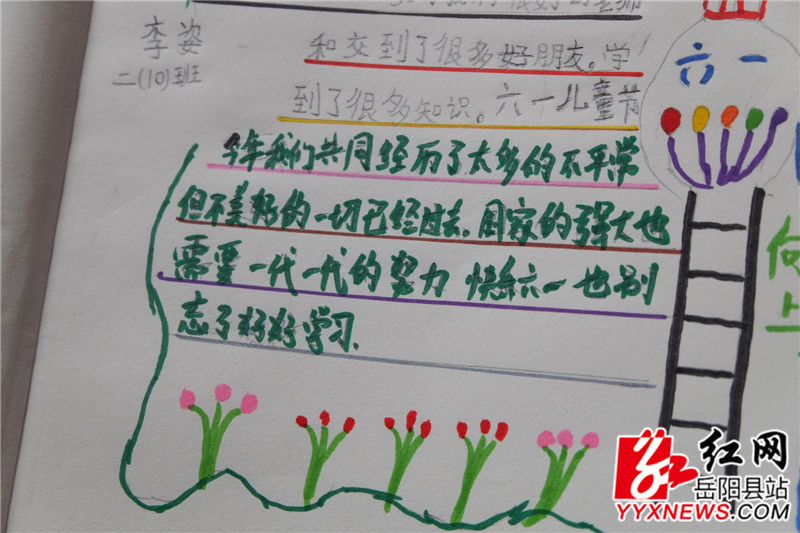 很好的老师
李姿
二(10)班
和交到了很多好朋友。学
到了很多知识。六一儿童节
今年我们共同经历了太多的不平常
但不美好的一切已经过去.国家的强大也
需要一代一代的努力 快乐六一也别
忘了好好学习.
六一
向
上
红网
岳阳县站
YYXNEWS.COM